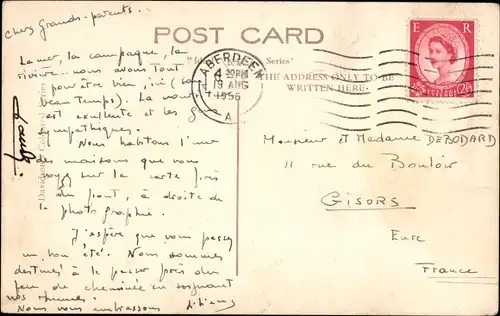 Chers Grands-parents.
La mer, la campagne, la
rivière.. nous avons tout
pour être bien, ici (sauf
beau temps). La nourriture
est excellente et les gens
sympathiques.
Nous habitons l'une
des maisons que vous
voyez sur la carte près
du pont, à droite de
la photographie.
J'espère que vous passez
un bon été. Nous sommes
destinés à le passer près du
feu de cheminée en soignant
nos rhumes.
Nous vous embrassons
POST CARD
Series'
THE ADDRESS ONLY TO BE
WRITTEN HERE.
ABERDEEN
19 AUG
1956
A
E R
POSTAGE REVENUE
2½D
Monsieur et Madame DEBODARD
11 rue du Bouloir
GISORS
Eure
France